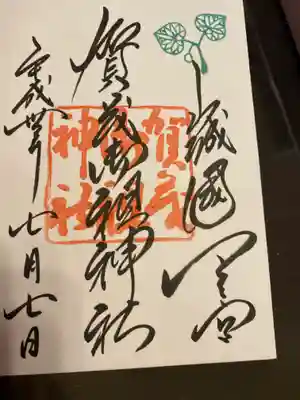 山城國一宮
賀茂御祖神社
賀茂
御祖
神社
平成卅年七月七日